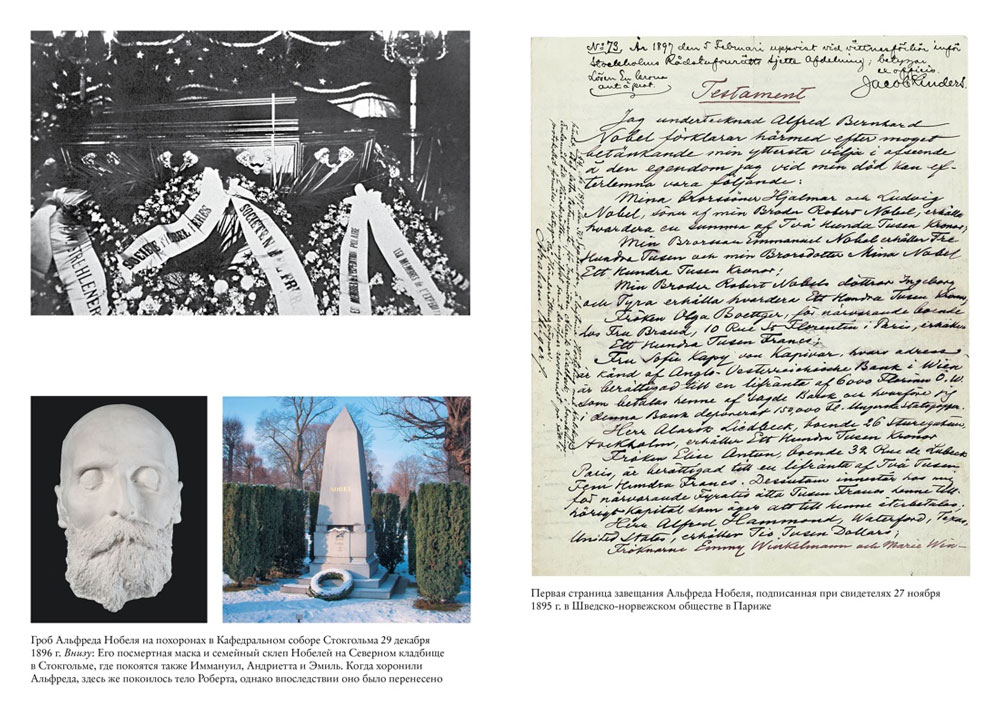 SOCIÉTÉ
SOCIÉTÉ N
NOBEL
Гроб Альфреда Нобеля на похоронах в Кафедральном соборе Стокгольма 29 декабря
1896 г. Внизу: Его посмертная маска и семейный склеп Нобелей на Северном кладбище
в Стокгольме, где покоятся также Иммануил, Андриетта и Эмиль. Когда хоронили
Альфреда, здесь же покоилось тело Роберта, однако впоследствии оно было перенесено
No 73, År 1897 den 5 Februari uppvist vid vittnesförhör inför
Stockholms Rådstufvurätts sjette Afdelning; betygar
ex officio
Lösen En krona
Jacob Enders.
Testament
Jag undertecknad Alfred Bernhard
Nobel förklarar härmed efter moget
betänkande min yttersta vilja i afseende
å den egendom jag vid min död kan ef-
terlemna vara följande:
Mina Brorsöner Hjalmar och Ludvig
Nobel, söner af min Broder Robert Nobel, erhålla
hvardera en summa af Två Hundra Tusen Kronor;
Min Brorson Emmanuel Nobel erhåller Tre
Hundra Tusen och min Brorsdotter Mina Nobel
Ett Hundra Tusen Kronor;
Min Broder Robert Nobels döttrar Ingeborg
och Tyra erhålla hvardera Ett Hundra Tusen Kronor;
Fröken Olga Boettger, för närvarande boende
hos Fru Brand, 10 Rue St Florentin i Paris, erhåller
Ett Hundra Tusen Francs;
Fru Sofie Kapy von Kapivar, hvars adress
är känd af Anglo-Oesterreichische Bank i Wien
är berättigad till en lifränta af 6000 Florins Ö.W.
som betalas henne af sagde Bank och hvarföre jag
i denna Bank deponerat 150,000 Fl. Ungerska Statspapper.
Herr Alarik Liedbeck, boende 26 Sturegatan,
Stockholm, erhåller Ett Hundra Tusen Kronor
Fröken Elise Antun, boende 32 Rue de Lubeck
Paris, är berättigad till en lifränta af Två Tusen
Fem Hundra Francs. Desutom innestår hos mig
för närvarande Fyratio åtta Tusen Francs henne till-
hörigt kapital som äger att till henne återbetalas;
Herr Alfred Hammond, Waterford, Texas,
United States, erhåller Tio Tusen Dollars;
Fröknarne Emmy Winkelmann och Marie Win-
Первая страница завещания Альфреда Нобеля, подписанная при свидетелях 27 ноября
1895 г. в Шведско-норвежском обществе в Париже